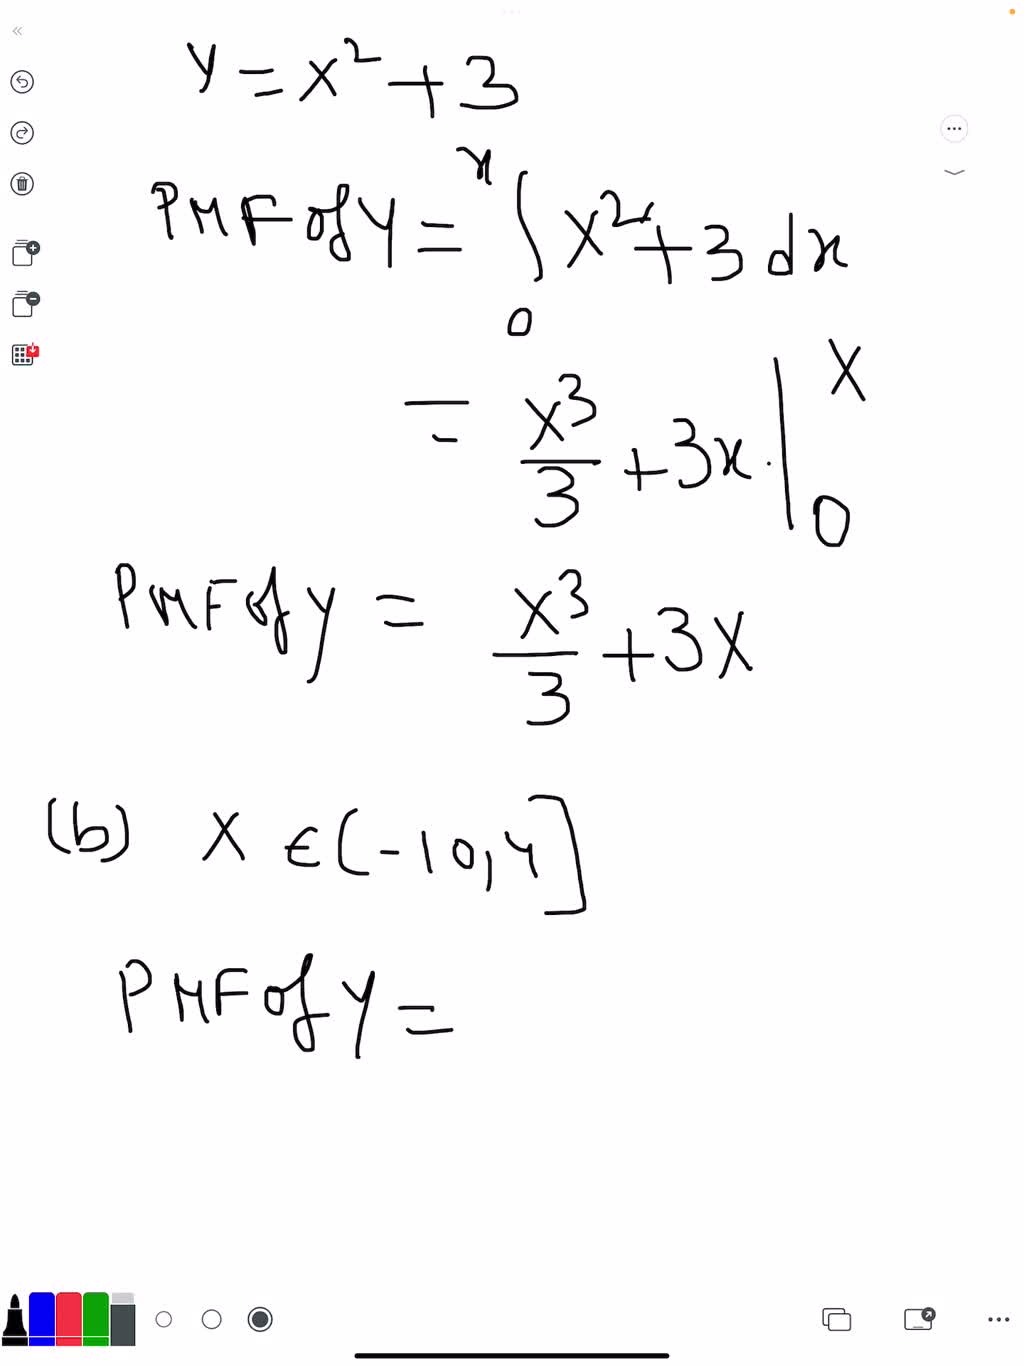 Y = X² + 3
PMF of Y = ∫₀ˣ X² + 3 dx
= X³/3 + 3x . |₀ˣ
PMF of y = X³/3 + 3X
(b) X ∈ (-10, 4]
PMF of Y =